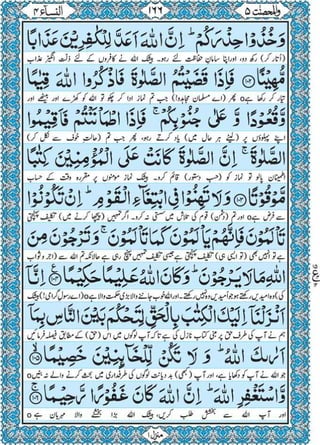 والمحصنت ۵ ۱۲۶ النسآء ۴
وَخُذُوْا حِذْرَكُمْ ؕ اِنَّ اللّٰهَ اَعَدَّ لِلْكٰفِرِيْنَ عَذَابًا
(اُتار کر) رکھ دو، اور اپنا سامانِ حفاظت لئے رہو۔ بیشک اللہ نے کافروں کے لئے ذلّت انگیز عذاب
مُّهِيْنًا ﴿۱۰۲﴾ فَاِذَا قَضَيْتُمُ الصَّلٰوةَ فَاذْكُرُوا اللّٰهَ قِيٰمًا
تیار کر رکھا ہے o پھر (اے مسلمان مجاہدو!) جب تم نماز ادا کر چکو تو اللہ کو کھڑے اور بیٹھے اور
وَّقُعُوْدًا وَّ عَلٰى جُنُوْبِكُمْ ۚ فَاِذَا اطْمَاْنَنْتُمْ فَاَقِيْمُوا
اپنے پہلوؤں پر (لیٹے ہر حال میں) یاد کرتے رہو، پھر جب تم (حالتِ خوف سے نکل کر)
الصَّلٰوةَ ۚ اِنَّ الصَّلٰوةَ كَانَتْ عَلَى الْمُؤْمِنِيْنَ كِتٰبًا
اطمینان پالو تو نماز کو (حسبِ دستور) قائم کرو۔ بیشک نماز مومنوں پر مقررہ وقت کے حساب
مَّوْقُوْتًا ﴿۱۰۳﴾ وَ لَا تَهِنُوْا فِى ابْتِغَآءِ الْقَوْمِ ؕ اِنْ تَكُوْنُوْا
سے فرض ہے o اور تم (دشمن) قوم کی تلاش میں سستی نہ کرو۔ اگر تمہیں (پیچھا کرنے میں) تکلیف پہنچتی
تَاْلَمُوْنَ فَاِنَّهُمْ يَاْلَمُوْنَ كَمَا تَاْلَمُوْنَ ۚ وَ تَرْجُوْنَ مِنَ
ہے تو انہیں بھی (تو ایسی ہی) تکلیف پہنچتی ہے جیسی تکلیف تمہیں پہنچ رہی ہے حالانکہ تم اللہ سے (اجر و ثواب
اللّٰهِ مَا لَا يَرْجُوْنَ ؕ وَ كَانَ اللّٰهُ عَلِيْمًا حَكِيْمًا ﴿۱۰۴﴾ اِنَّاۤ
کی) وہ امیدیں رکھتے ہو جو امیدیں وہ نہیں رکھتے۔ اور اللہ خوب جاننے والا بڑی حکمت والا ہے o (اے رسولِ گرامی!) بیشک
اَنْزَلْنَاۤ اِلَيْكَ الْكِتٰبَ بِالْحَقِّ لِتَحْكُمَ بَيْنَ النَّاسِ بِمَاۤ
ہم نے آپ کی طرف حق پر مبنی کتاب نازل کی ہے تاکہ آپ لوگوں میں اس (حق) کے مطابق فیصلہ فرمائیں
اَرٰىكَ اللّٰهُ ؕ وَ لَا تَكُنْ لِّلْخَآئِنِيْنَ خَصِيْمًا ﴿۱۰۵﴾
جو اللہ نے آپ کو دکھایا ہے، اور آپ (کبھی) بد دیانت لوگوں کی طرفداری میں بحث کرنے والے نہ بنیں o
وَّ اسْتَغْفِرِ اللّٰهَ ؕ اِنَّ اللّٰهَ كَانَ غَفُوْرًا رَّحِيْمًا ﴿۱۰۶﴾
اور آپ اللہ سے بخشش طلب کریں، بیشک اللہ بڑا بخشنے والا مہربان ہے o
منزل ۱